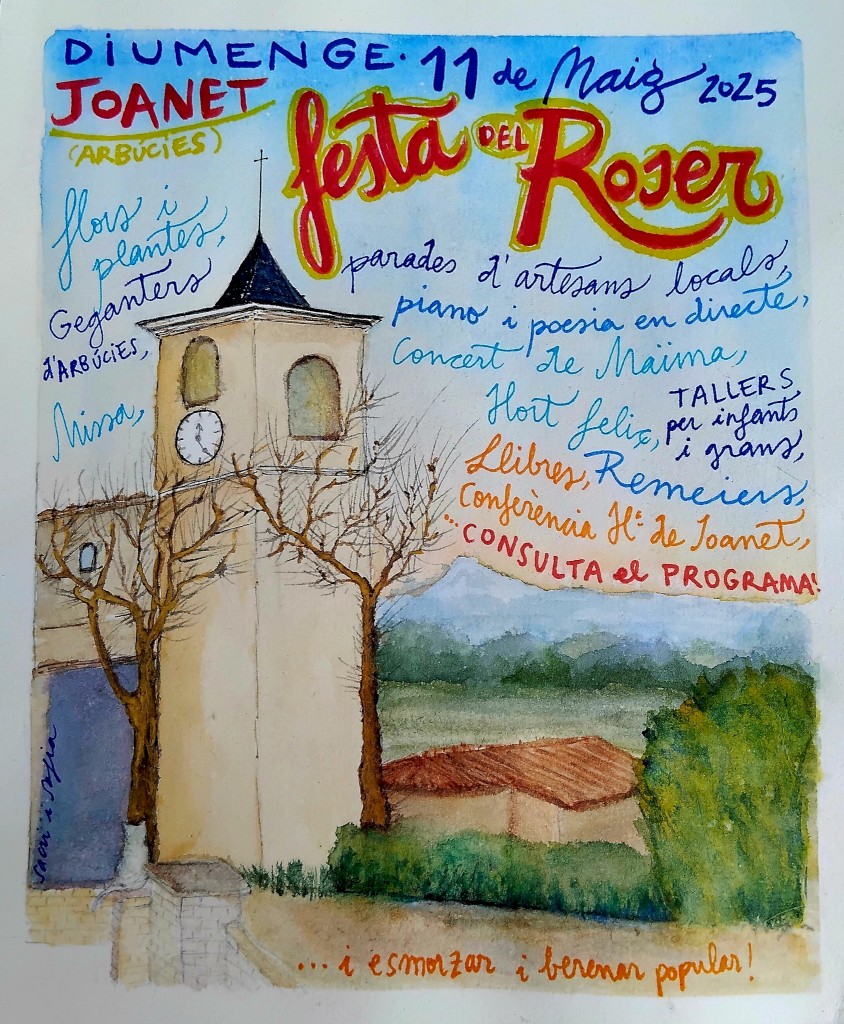 DIUMENGE · 11 de Maig 2025
JOANET
(ARBÚCIES)
festa DEL Roser
flors i
plantes,
Geganters
d'ARBÚCIES,
Missa,
parades d'artesans locals,
piano i poesia en directe,
Concert de Maïma,
Hort feliç,
TALLERS
per infants
i grans,
Llibres, Remeiers,
Conferència Hª de Joanet,
...CONSULTA el PROGRAMA!
... i esmorzar i berenar popular!